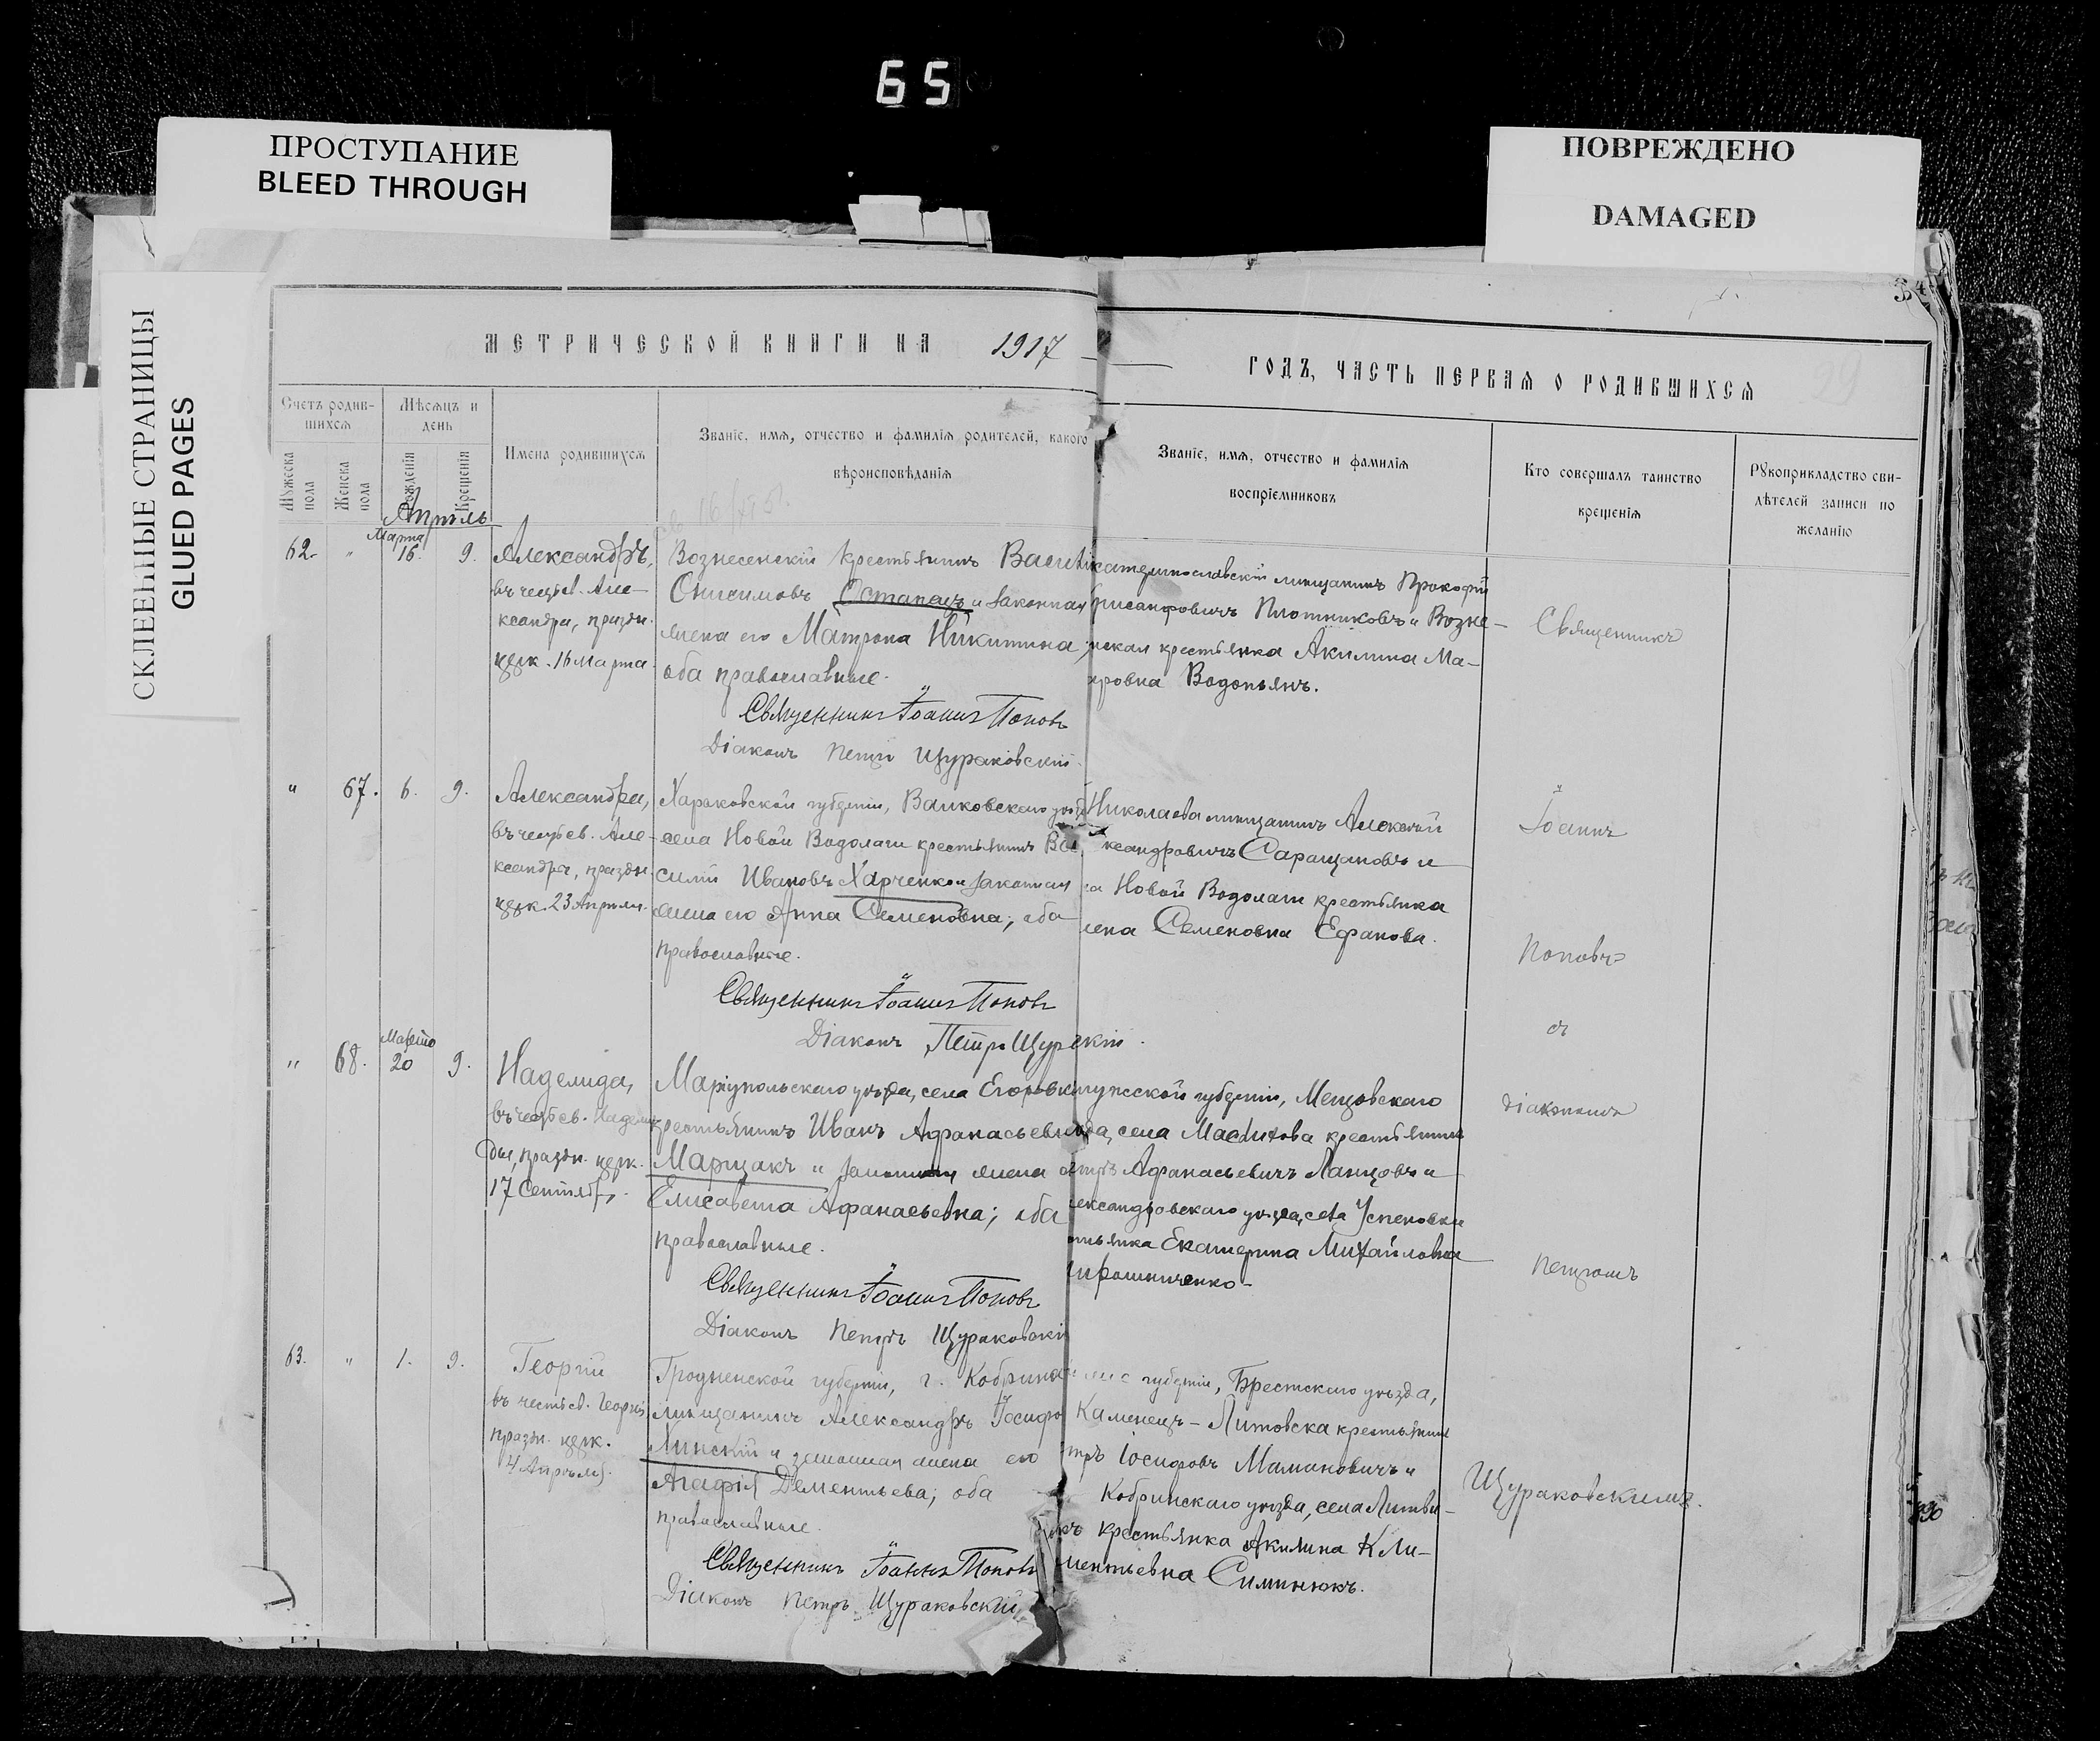 65
ПРОСТУПАНИЕ
BLEED THROUGH
ПОВРЕЖДЕНО
DAMAGED
СКЛЕЕННЫЕ СТРАНИЦЫ
GLUED PAGES
МЕТРИЧЕСКОЙ КНИГИ НА 1917
ГОДЪ, ЧАСТЬ ПЕРВАЯ О РОДИВШИХСЯ
Счетъ родив-
шихся
Мѣсяцъ и
день
Мужеска
пола
Женска
пола
Рожденія
Крещенія
Имена родившихся
Званіе, имя, отчество и фамилія родителей, какого
вѣроисповѣданія
Званіе, имя, отчество и фамилія
воспріемниковъ
Кто совершалъ таинство
крещенія
Рукоприкладство сви-
дѣтелей записи по
желанію
Апрѣль
62. " Марта 16. 9.
Александръ,
въ честь св. Але-
ксандра, праздн.
церк. 16 Марта
Вознесенскій крестьянинъ
Онисимовъ Остапецъ и законная
жена его Матрона Никитина;
оба православные.
Священникъ Іоаннъ Поповъ
Діаконъ Петръ Щураковскій.
катеринославскій мѣщанинъ Прокофій
рисанфовичъ Плотниковъ и Возне-
нская крестьянка Акилина Ма-
кровна Водопьянъ.
Священникъ
" 67. 6. 9.
Александра,
въ честь св. Але-
ксандра, праздн.
церк. 23 Апрѣля.
Харьковской губерніи, Валковскаго уѣзда
села Новой Водолаги крестьянинъ Ва
силій Ивановъ Харченко и законная
жена его Анна Семеновна; оба
православные.
Священникъ Іоаннъ Поповъ
Діаконъ Петръ
Николаева мѣщанинъ Алексѣй
ксандровичъ Саращановъ и
ла Новой Водолаги крестьянка
лена Семеновна Ефанова.
Іоаннъ
Поповъ
съ
" 68. Марта 20 9.
Надежда,
въ честь св. Надеж
ды, праздн. церк.
17 Сентября.
Маріупольскаго уѣзда, села Егоровки
крестьянинъ Иванъ Афанасьевъ
Марщакъ и законная жена
Елисавета Афанасьевна; оба
православные.
Священникъ Іоаннъ Поповъ
Діаконъ Петръ Щураковскій
лужской губерніи, Мещовскаго
ѣзда, села крестьянинъ
етръ Афанасьевичъ Ланцовъ и
лександровскаго уѣзда, села Успеновки
стьянка Екатерина Михайловна
ирошниченко.
Діакономъ
Петромъ
63. " 1. 9.
Георгій
въ честь св. Георгія
праздн. церк.
4 Апрѣля.
Гродненской губерніи, г. Кобрина
мѣщанинъ Александръ Іосифо
Линскій и законная жена его
Агафія Дементьева; оба
православные.
Священникъ Іоаннъ Поповъ
Діаконъ Петръ Щураковскій
губерніи, Брестскаго уѣзда,
Каменецъ-Литовска крестьянинъ
етръ Іосифовъ Мамановичъ и
Кобринскаго уѣзда, села Литви-
къ крестьянка Акилина Кли-
ментьевна Симинюкъ.
Щураковскимъ.